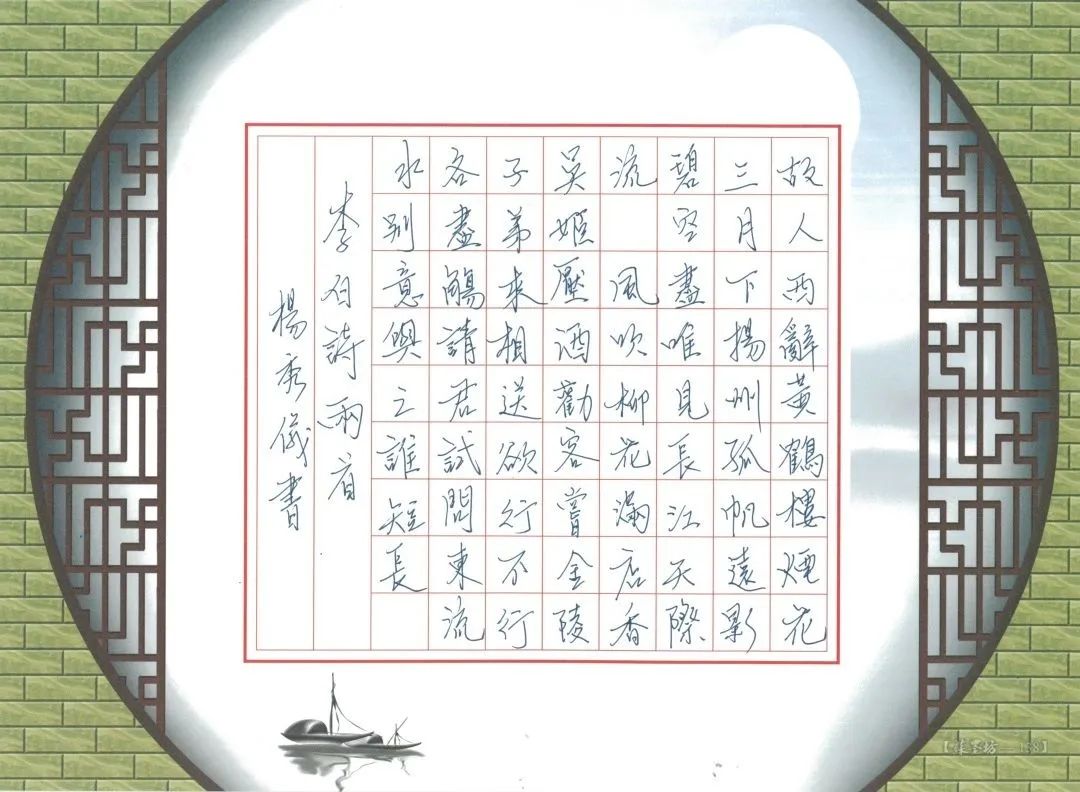 故人西辭黃鶴樓煙花
三月下揚州孤帆遠影
碧空盡唯見長江天際
流 風吹柳花滿店香
吳姬壓酒勸客嘗金陵
子弟來相送欲行不行
各盡觴請君試問東流
水別意與之誰短長
李白詩兩首
楊秀儀書